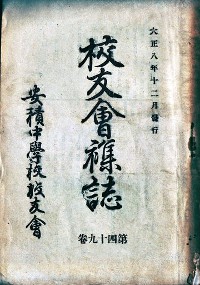 大正八年十二月發行
校友會雜誌
安積中學校校友會
卷九十四第